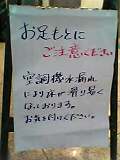 お足もとに
ご注意ください
空調機水漏れ
により床が滑り易く
なっております。
お気を付けください。